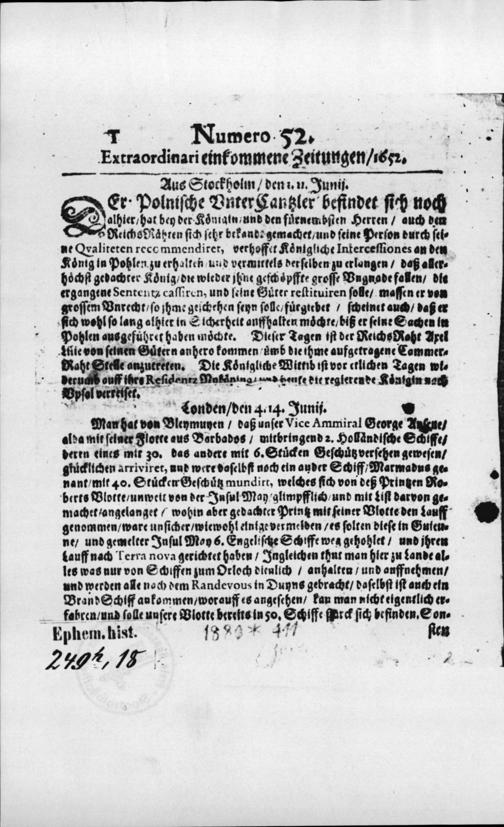 T
Numero 52.
Extraordinari einkommene Zeitungen/1652.
Aus Stockholm/den 1. 11. Junij.
DEr Polnische Unter Cantzler befindet sich noch
alhier/hat bey der Königin und den fürnembsten Herren/ auch den
Reichs Rähten sich sehr bekandt gemachet/und seine Person durch sei-
ne Qvaliteten recommendiret, verhoffet Königliche Intercessiones an den
König in Pohlen zu erhalten und vermittels derselben zu erlangen/ daß aller-
höchst gedachter König/die wieder jhne geschöpffte grosse Ungnade fallen/ die
ergangene Sententz cassiren, und seine Güter restituiren solle/ massen er von
grossem Unrecht/so jhme geschehen seyn solle/fürgiebet / scheinet auch/daß er
sich wohl so lang alhier in Sicherheit auffhalten möchte/biß er seine Sachen in
Pohlen ausgeführet haben möchte. Dieser Tagen ist der Reichs Raht Axel
Lilie von seinen Gütern anhero kommen/umb die ihme auffgetragene Commer-
Raht Stelle anzutreten. Die Königliche Wittib ist vor etlichen Tagen wi-
derumb auff ihre Residentz Nyköning/und heute die regierende Königin nach
Upsal verreiset.
Londen/den 4.14. Junij.
Man hat von Pleymuyen / daß unser Vice Ammiral George
alda mit seiner Flotte aus Barbados / mitbringend 2. Holländische Schiffe/
deren eines mit 30. das andere mit 6. Stücken Geschütz versehen gewesen/
glücklichen arriviret, und were daselbst noch ein ander Schiff/Marmadus ge-
nant/mit 40. Stücken Geschütz mundirt, welches sich von deß Printzen Ro-
berts Vlotte/unweit von der Insul May/glimpfflich/und mit List darvon ge-
machet/angelanget / wohin aber gedachter Printz mit seiner Vlotte den Lauff
genommen/ware unsicher/wiewohl einige vermelden/es solten diese in Guieu-
ne/ und gemelter Insul May 6. Engelische Schiffe weg geholet / und jhren
Lauff nach Terra nova gerichtet haben/ Ingleichen thut man hier zu Lande al-
les was nur von Schiffen zum Orloch dienlich / anhalten/ und auffnehmen/
und werden alle nach dem Randevous in Duyns gebracht/daselbst ist auch ein
Brand Schiff ankommen/worauff es angesehen/ kan man nicht eigentlich er-
fahren/und solle unsere Vlotte bereits in 50. Schiffe starck sich befinden. Son-
sten
Ephem. hist.
1889* 411
249h, 18